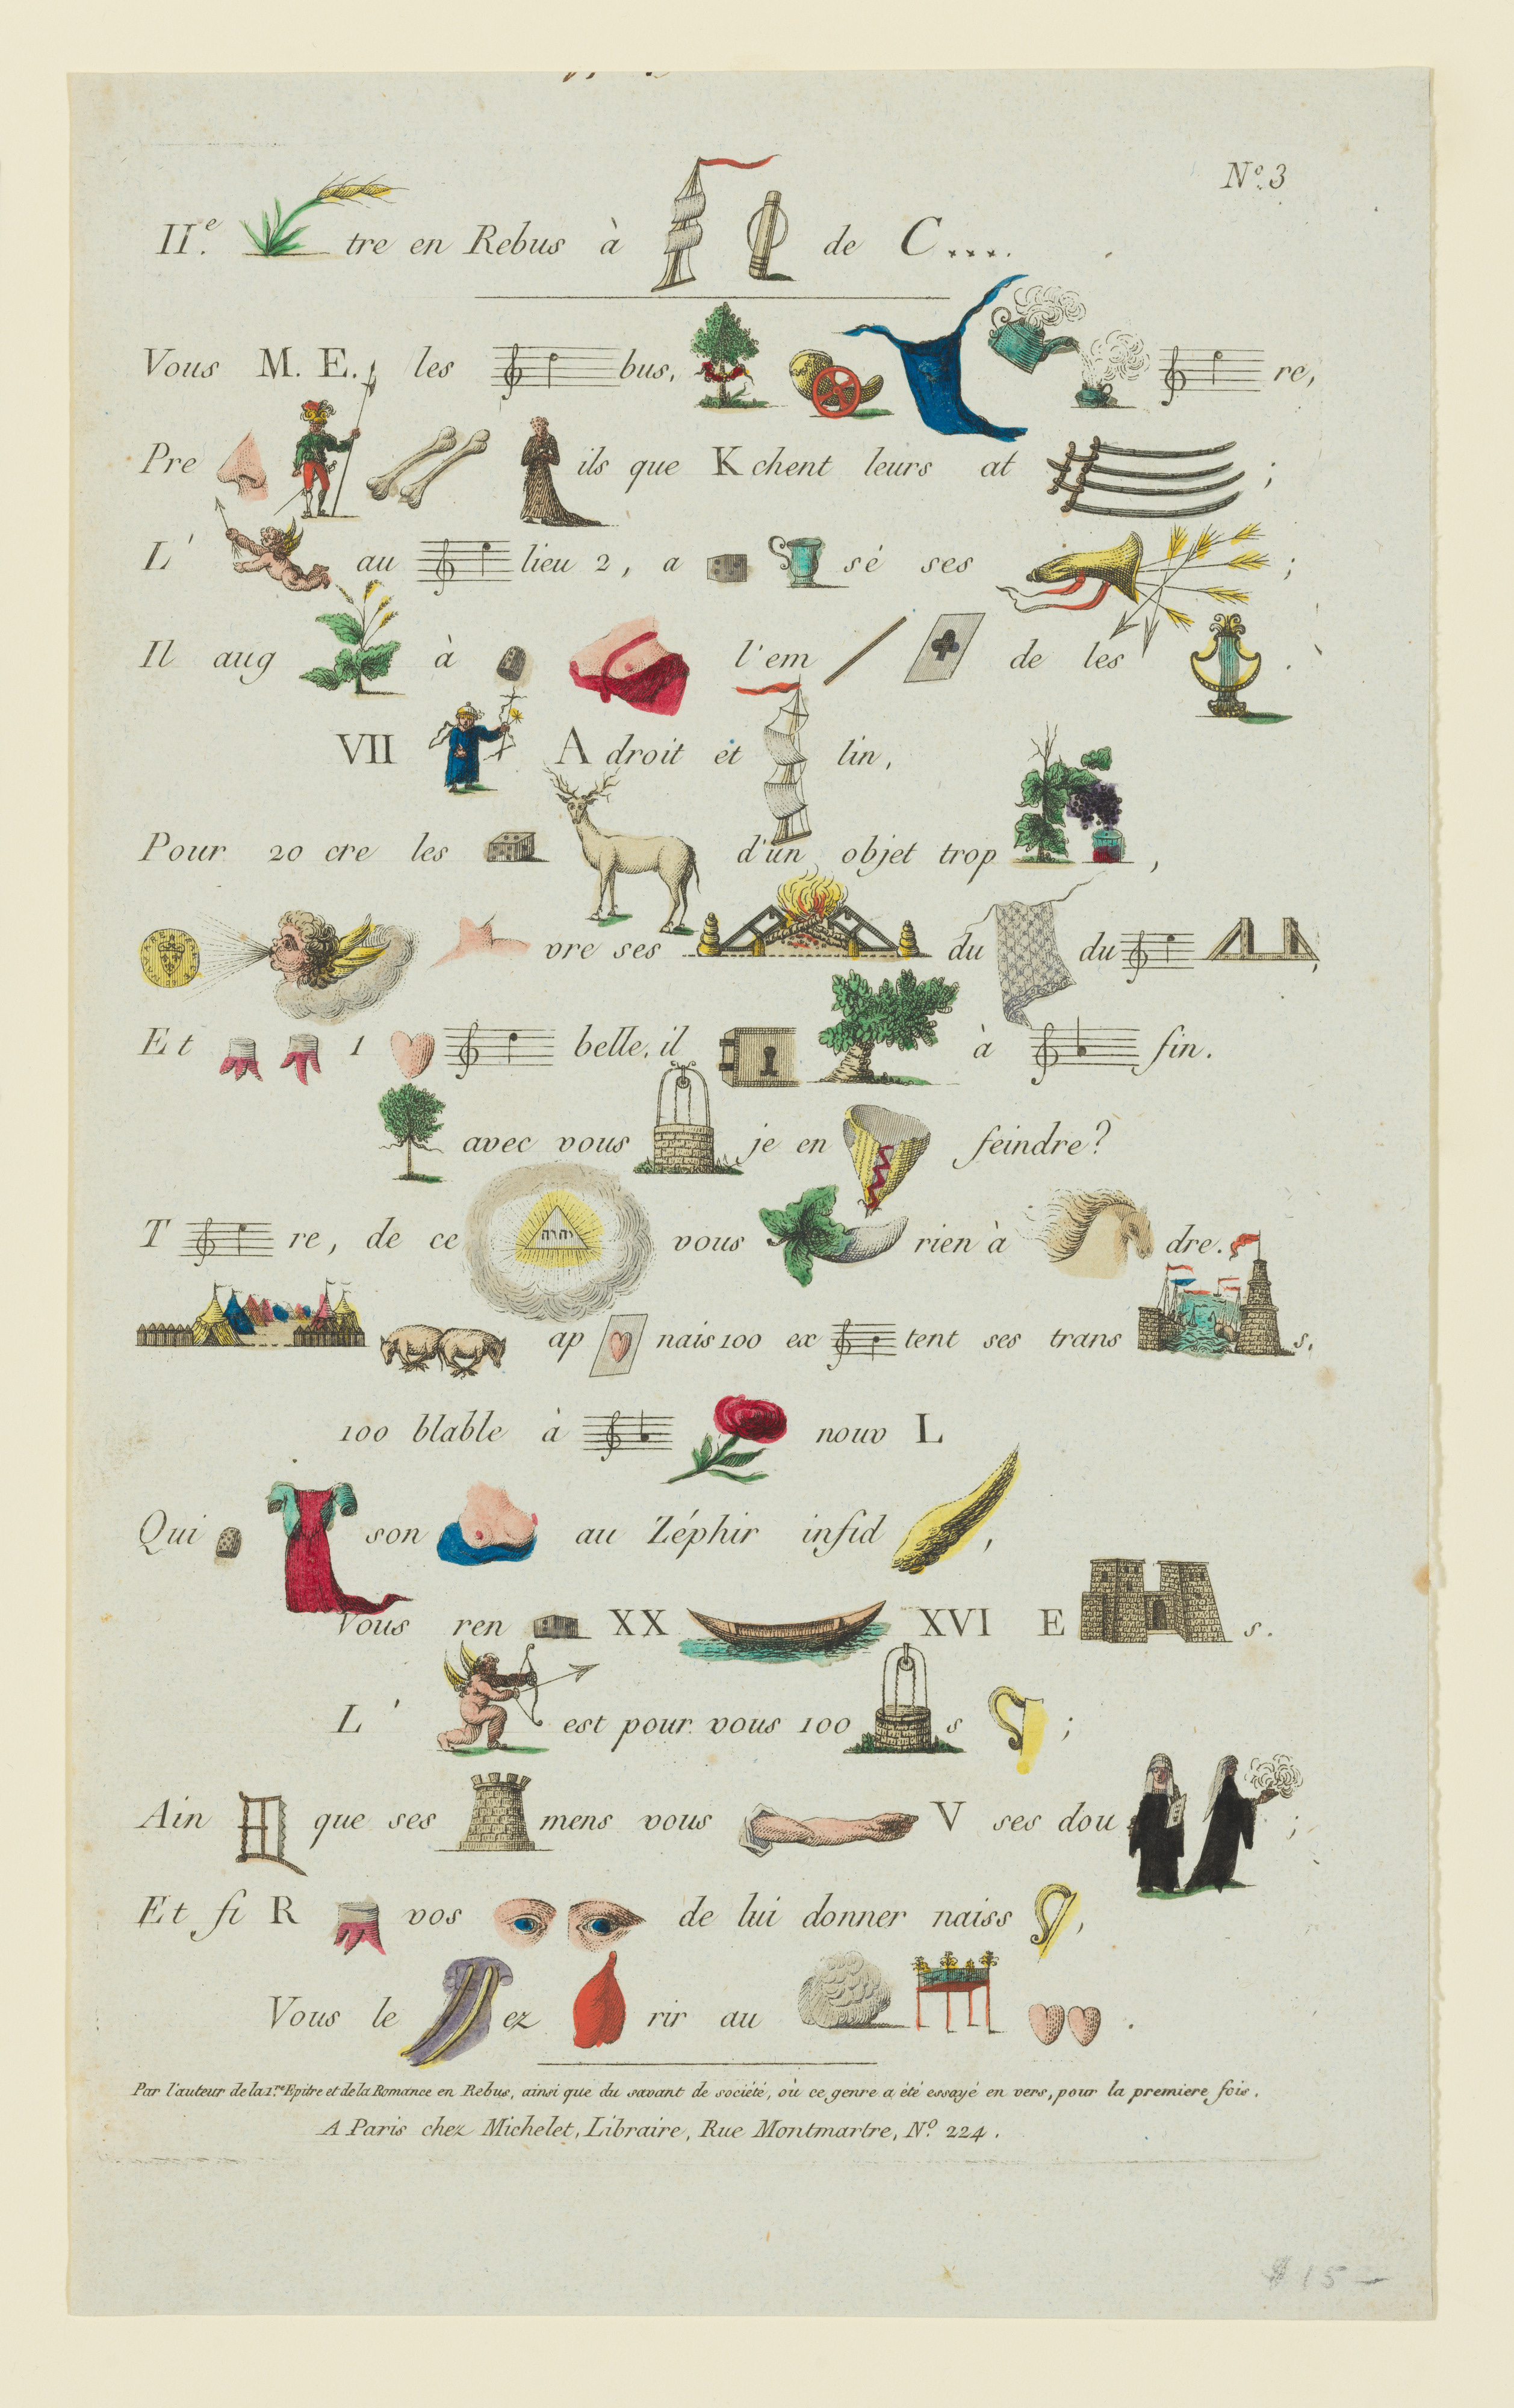 Nº. 3
IIe. tre en Rebus à de C....
Vous M. E. les bus, re,
Pre ils que K chent leurs at ;
L' au lieu 2, a sé ses ;
Il aug à l'em de les .
VII A droit et lin,
Pour 20 cre les d'un objet trop ,
vre ses du du ,
Et 1 belle, il à fin.
avec vous je en feindre?
T re, de ce יהוה vous rien à dre.
ap nais 100 ex tent ses trans s.
100 blable à nouv L
Qui son au Zéphir infid ,
Vous ren XX XVI E s.
L' est pour vous 100 s ;
Ain que ses mens vous V ses dou ;
Et fi R vos de lui donner naiss ,
Vous le ez rir au .
Par l'auteur de la 1re. Epitre et de la Romance en Rebus, ainsi que du savant de société, où ce genre a été essayé en vers, pour la premiere fois.
A Paris chez Michelet, Libraire, Rue Montmartre, Nº. 224.
$15-